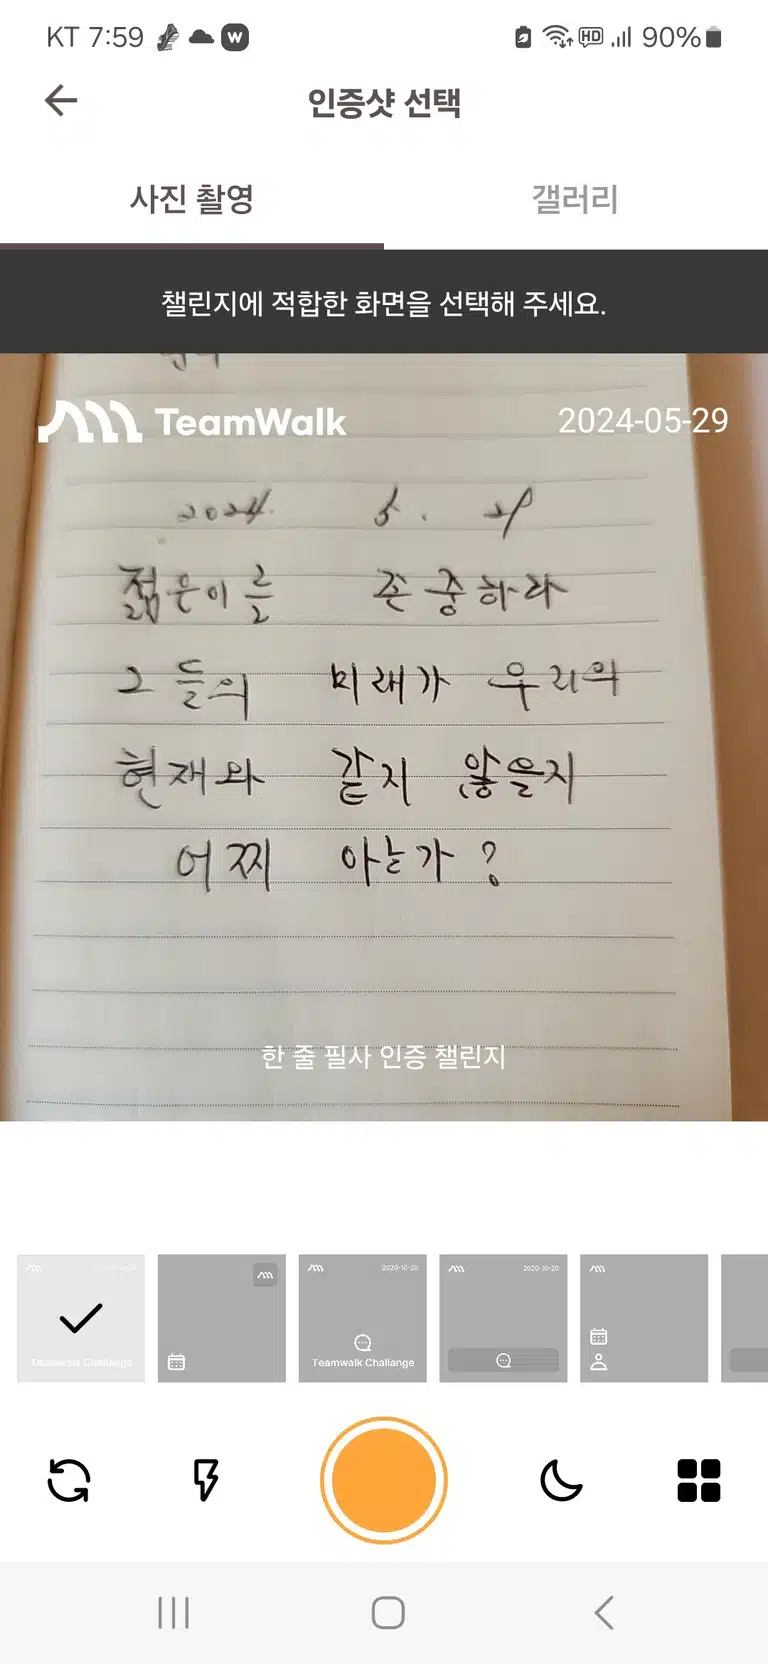 KT 7:59 W HD 90%
인증샷 선택
사진 촬영 갤러리
챌린지에 적합한 화면을 선택해 주세요.
TeamWalk 2024-05-29
2024. 5. 29
젊은이를 존중하라
그들의 미래가 우리의
현재와 같지 않을지
어찌 아는가?
한 줄 필사 인증 챌린지
Teamwalk Challange 2020-10-20 2020-10-20
Teamwalk Challange